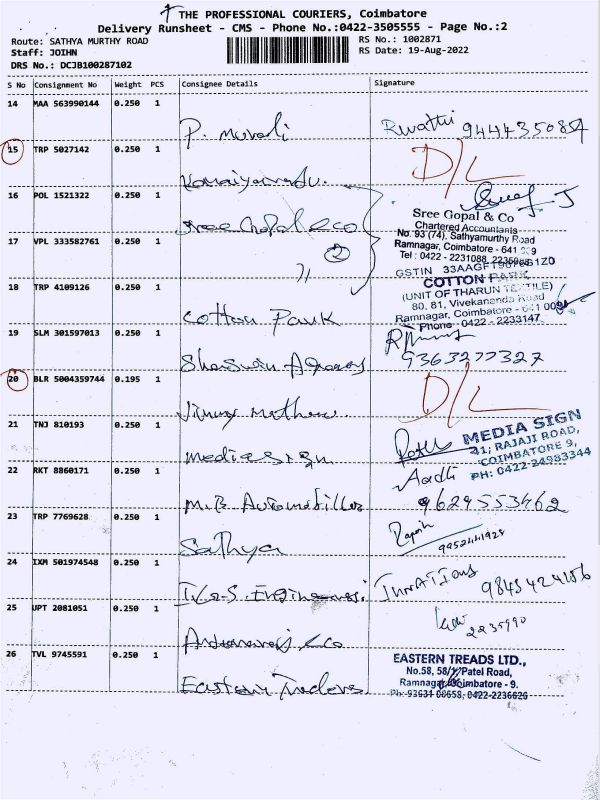 THE PROFESSIONAL COURIERS, Coimbatore
Delivery Runsheet - CMS - Phone No.:0422-3505555 - Page No.:2
Route: SATHYA MURTHY ROAD
Staff: JOIHN
DRS No.: DCJB100287102
RS No.: 1002871
RS Date: 19-Aug-2022
S No Consignment No Weight PCS Consignee Details Signature
14 MAA 563990144 0.250 1
P. Murali Revathi
15 TRP 5027142 0.250 1 D/L
16 POL 1521322 0.250 1
Sree Gopal & Co
Sree Gopal & Co
Chartered Accountants
No. 93 (74), Sathyamurthy Road
Ramnagar, Coimbatore - 641 009
17 VPL 333582761 0.250 1
Tel : 0422 - 2231088,
" 2
GSTIN
18 TRP 4109126 0.250 1
COTTON PARK
(UNIT OF THARUN TEXTILE)
80, 81, Vivekananda Road
Cotton Park Ramnagar, Coimbatore - 641 009
Phone : 0422 - 2233147
19 SLM 301597013 0.250 1
9363277327
20 BLR 5004359744 0.195 1 D/L
21 TNJ 810193 0.250 1
MEDIA SIGN
41, RAJAJI ROAD,
COIMBATORE 9,
Media Sign PH: 0422-
22 RKT 8860171 0.250 1
9629553462
23 TRP 7769628 0.250 1
Sathya
24 IXM 501974548 0.250 1
25 UPT 2081051 0.250 1
2235990
26 TVL 9745591 0.250 1
EASTERN TREADS LTD.,
No.58, 58/1, Patel Road,
Ramnagar, Coimbatore - 9.
Eastern Traders Ph: 93631 00658, 0422-2236626